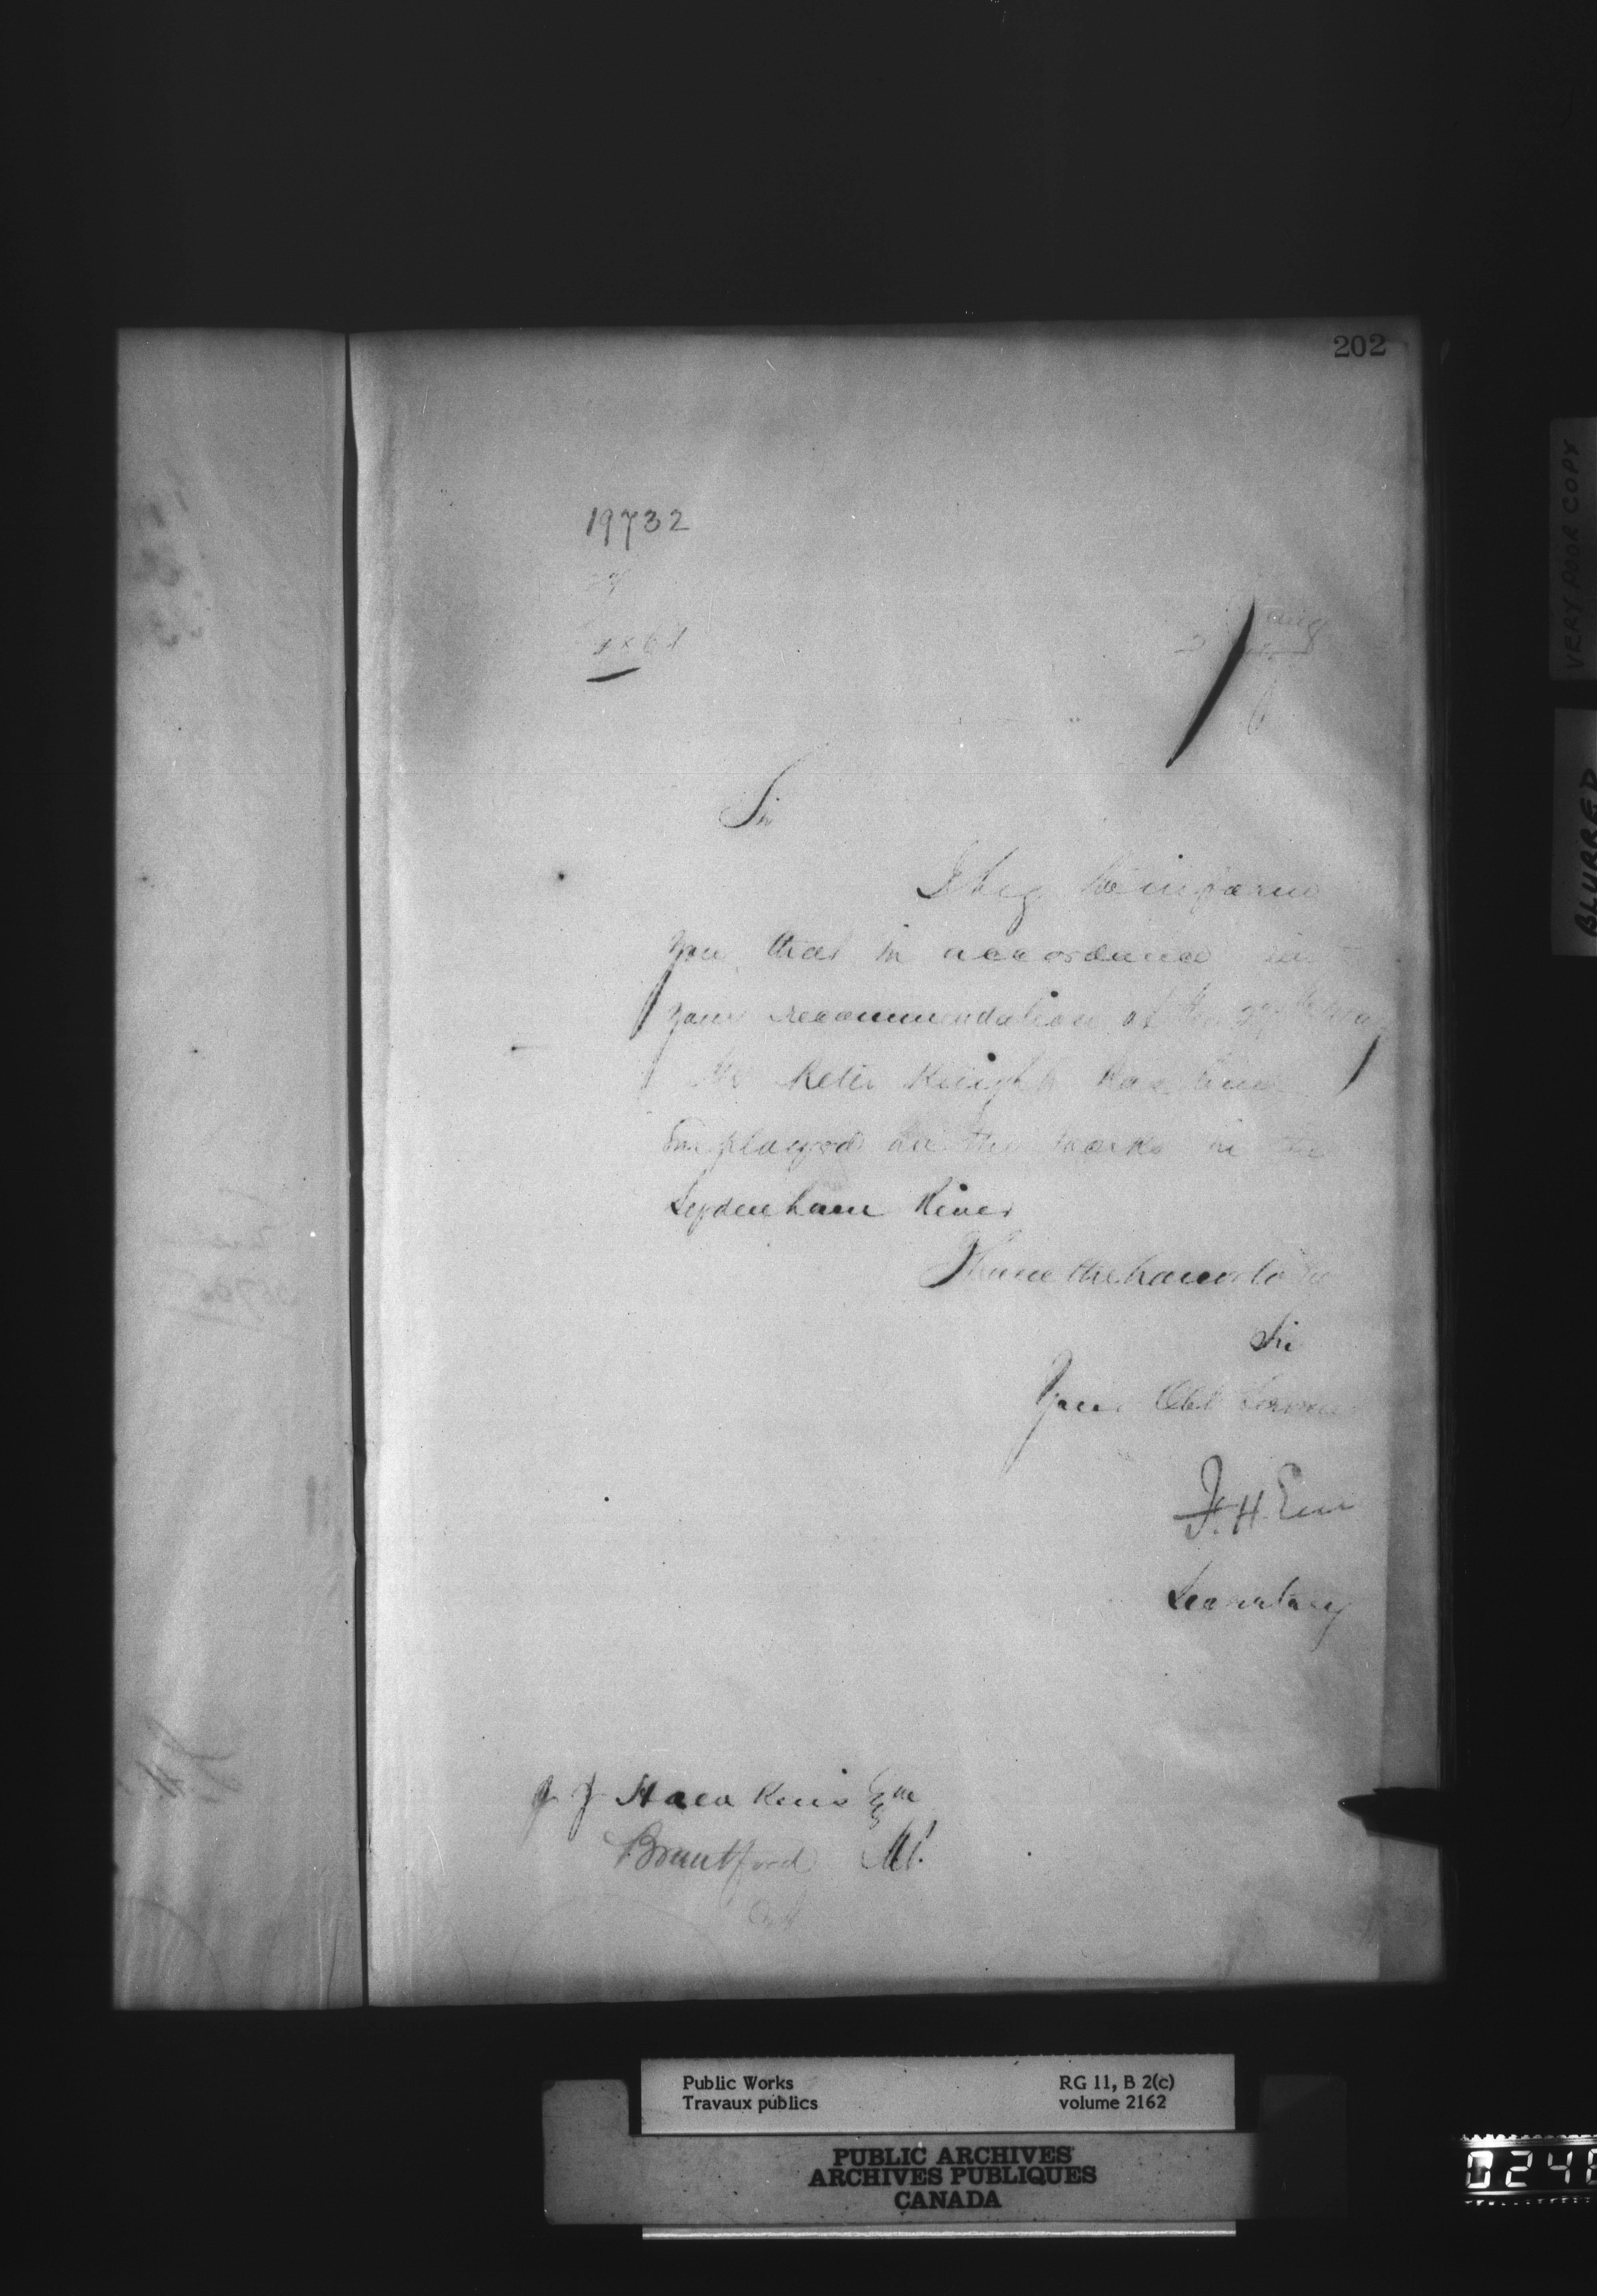 202
19732
Aug
Sir
I beg to inform
you that in accordance
your recommendation of the 27th
Mr Peter Knight has been
Employed on the works in the
Sydenham River
I have the honor to be
Sir
Your Obt Servant
F. H. Enn
Secretary
J J Hawkins Esq
Brantford M.P.
Ont
VERY POOR COPY
BLURRED
Public Works
Travaux publics
RG 11, B 2(c)
volume 2162
PUBLIC ARCHIVES
ARCHIVES PUBLIQUES
CANADA